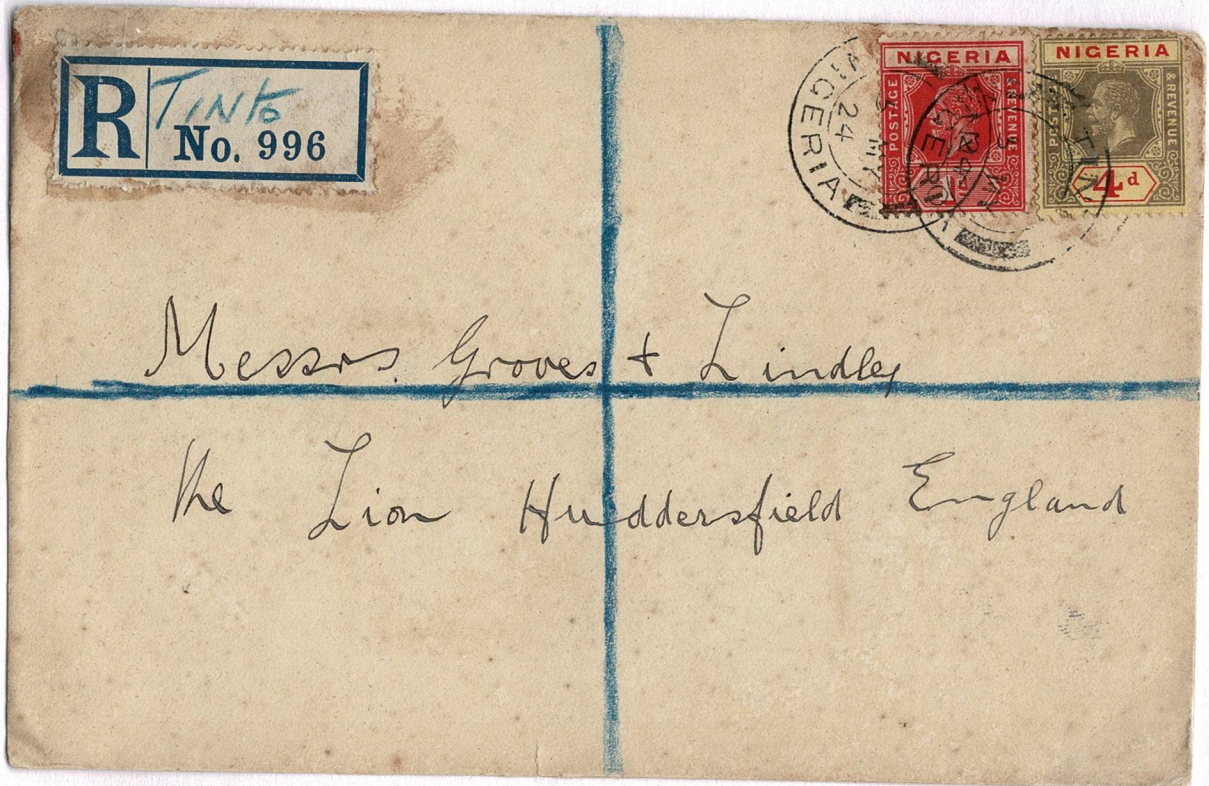 R TINTO
No. 996
NIGERIA
POSTAGE & REVENUE
1d
NIGERIA
POSTAGE & REVENUE
4d
NIGERIA
24
MY
NIGERIA
Messrs. Groves + Lindley
The Lion Huddersfield England